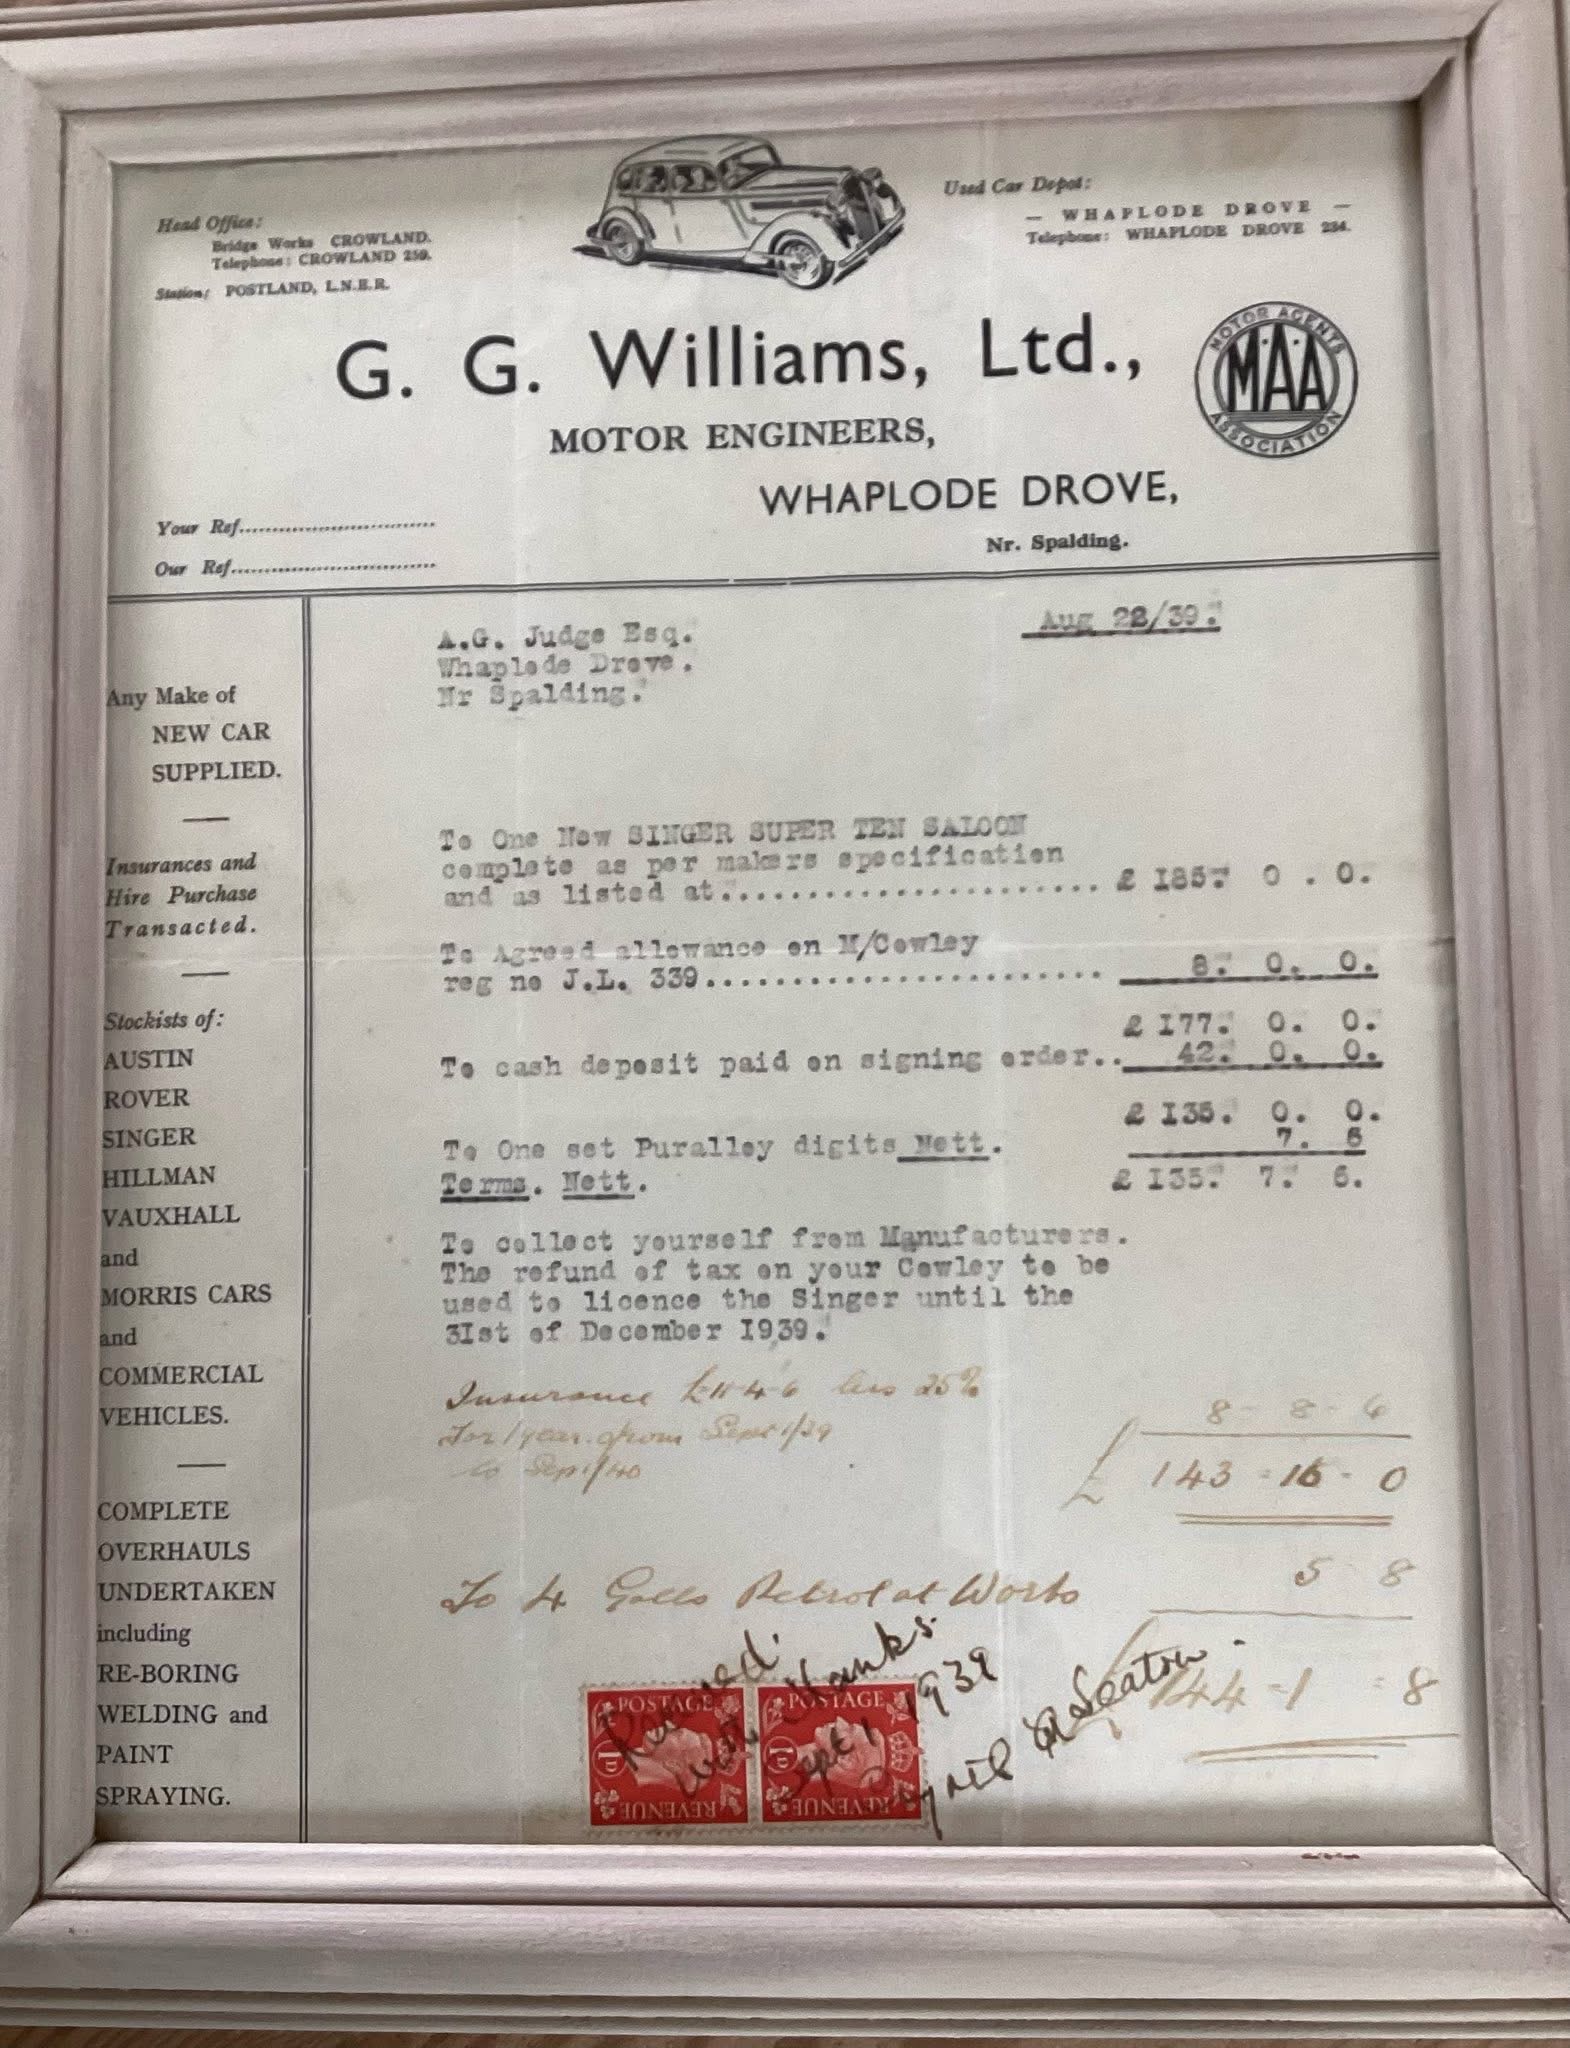 Head Office:
Bridge Works CROWLAND.
Telephone: CROWLAND 259.
Station: POSTLAND, L.N.E.R.
Used Car Depot:
— WHAPLODE DROVE —
Telephone: WHAPLODE DROVE 234.
G. G. Williams, Ltd.,
MOTOR AGENTS
M.A.A
ASSOCIATION
MOTOR ENGINEERS,
WHAPLODE DROVE,
Nr. Spalding.
Your Ref..............................
Our Ref...............................
Any Make of
NEW CAR
SUPPLIED.
Insurances and
Hire Purchase
Transacted.
Stockists of:
AUSTIN
ROVER
SINGER
HILLMAN
VAUXHALL
and
MORRIS CARS
and
COMMERCIAL
VEHICLES.
COMPLETE
OVERHAULS
UNDERTAKEN
including
RE-BORING
WELDING and
PAINT
SPRAYING.
A.G. Judge Esq. Aug 22/39.
Whaplode Drove.
Nr Spalding.
To One New SINGER SUPER TEN SALOON
complete as per makers specification
and as listed at....................... £ 185. 0 . 0.
To Agreed allowance on M/Cowley
reg no J.L. 339........................ 8. 0. 0.
£ 177. 0. 0.
To cash deposit paid on signing order.. 42. 0. 0.
£ 135. 0. 0.
To One set Puralley digits Nett. 7. 6
Terms. Nett. £ 135. 7. 6.
To collect yourself from Manufacturers.
The refund of tax on your Cowley to be
used to licence the Singer until the
31st of December 1939.
Insurance £11-4-6 less 25% 8 - 8 - 6
For 1 year from Sept 1/39
to Sep 1/40
£ 143 - 16 - 0
To 4 Galls Petrol at Works 5 8
144 - 1 - 8
POSTAGE 1D REVENUE
POSTAGE 1D REVENUE
Received
with thanks
Sept 1 1939
Seaton